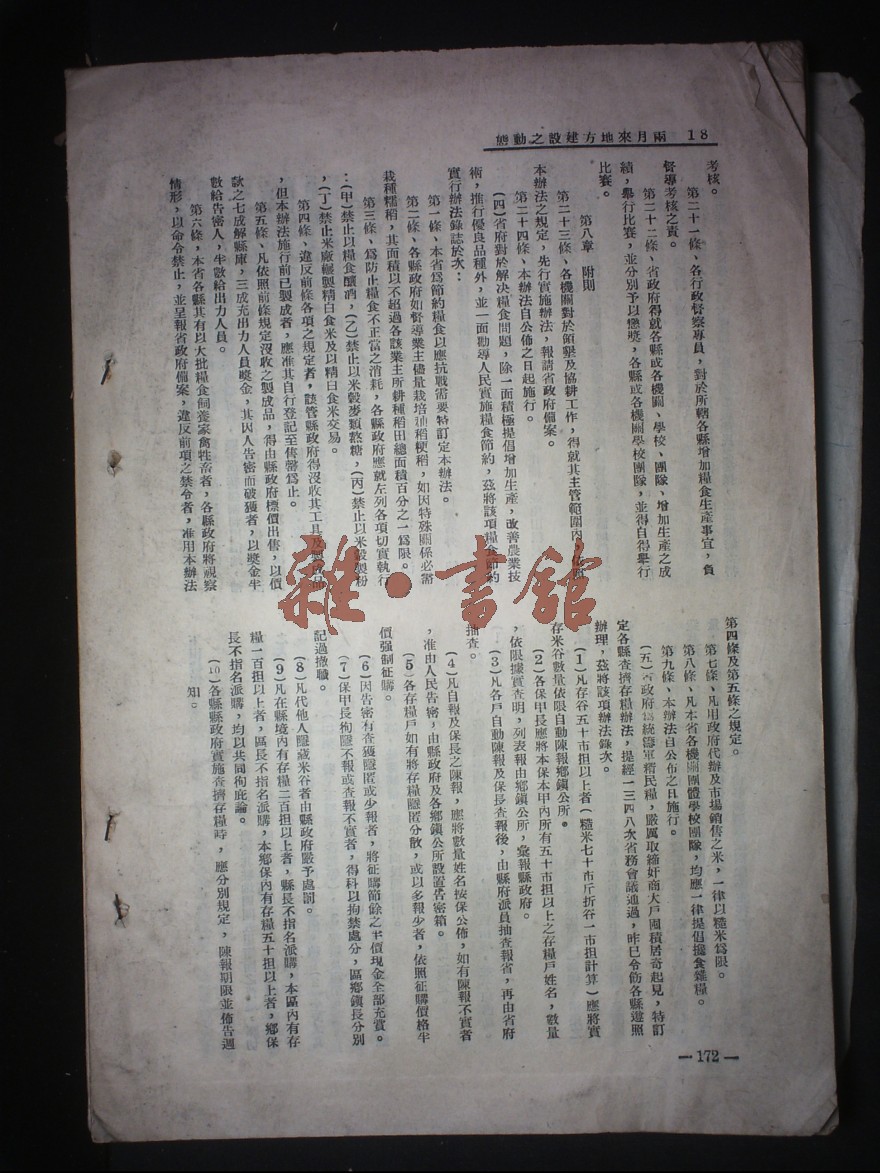 18 兩月來地方建設之動態
考核。
第二十一條、各行政督察專員，對於所轄各縣增加糧食生產事宜，負
督導考核之責。
第二十二條、省政府得就各縣或各機關、學校、團隊、增加生產之成
績，舉行比賽，並分別予以懲獎，各縣或各機關學校團隊，並得自得舉行
比賽。
第八章　附則
第二十三條、各機關對於領墾及協耕工作，得就其主管範圍內，依照
本辦法之規定，先行實施辦法，報請省政府備案。
第二十四條、本辦法自公佈之日起施行。
(四)省府對於解決糧食問題，除一面積極提倡增加生產，改善農業技
術，推行優良品種外，並一面勸導人民實施糧食節約，茲將該項糧食節約
實行辦法錄誌於次：
第一條、本省爲節約糧食以應抗戰需要特訂定本辦法。
第二條、各縣政府如督導業主儘量栽培秈稻粳稻，如因特殊關係必需
栽種糯稻，其面積以不超過各該業主所耕種稻田總面積百分之一爲限。
第三條、爲防止糧食不正當之消耗，各縣政府應就左列各項切實執行
：(甲)禁止以糧食釀酒，(乙)禁止以米穀麥類熬糖，(丙)禁止以米穀製粉
，(丁)禁止米廠碾製精白食米及以精白食米交易。
第四條、違反前條各項之規定者，該管縣政府得沒收其工具及製成品
，但本辦法施行前已製成者，應准其自行登記至售罄爲止。
第五條、凡依照前條規定沒收之製成品，得由縣政府標價出售，以價
款之七成解縣庫，三成充出力人員獎金，其因人告密而破獲者，以獎金半
數給告密人，半數給出力人員。
第六條，本省各縣其有以大批糧食飼養家禽牲畜者，各縣政府將視察
情形，以命令禁止，並呈報省政府備案，違反前項之禁令者，准用本辦法
第四條及第五條之規定。
第七條、凡用政府代辦及市場銷售之米，一律以糙米爲限。
第八條、凡本省各機關團體學校團隊，均應一律提倡攙食雜糧。
第九條、本辦法自公布之日施行。
(五)省政府爲統籌軍精民糧，嚴厲取締奸商大戶囤積居奇起見，特訂
定各縣查擠存糧辦法，提經一三四八次省務會議通過，昨已令飭各縣遵照
辦理，茲將該項辦法錄次。
(1)凡存谷五十市担以上者(糙米七十市斤折谷一市担計算)應將實
存米谷數量依限自動陳報鄉鎮公所。
(2)各保甲長應將本保本甲內所有五十市担以上之存糧戶姓名，數量
，依限據實查明，列表報由鄉鎮公所，彙報縣政府。
(3)凡各戶自動陳報及保長查報後，由縣府派員抽查報省，再由省府
抽查。
(4)凡自報及保長之陳報，應將數量姓名按保公佈，如有陳報不實者
，准由人民告密，由縣政府及各鄉鎮公所設置告密箱。
(5)各存糧戶如有將存糧隱匿分散，或以多報少者，依照征購價格半
價强制征購。
(6)因告密而查獲隱匿或少報者，將征購節餘之半價現金全部充賞。
(7)保甲長徇隱不報或查報不實者，得科以拘禁處分，區鄉鎮長分別
記過撤職。
(8)凡代他人隱藏米谷者由縣政府嚴予處罰。
(9)凡在縣境內有存糧二百担以上者，縣長不指名派購，本區內有存
糧一百担以上者，區長不指名派購，本鄉保內有存糧五十担以上者，鄉保
長不指名派購，均以共同徇庇論。
(10)各縣縣政府實施查擠存糧時，應分別規定，陳報期限並佈告週
知。
—172—
雜·書館